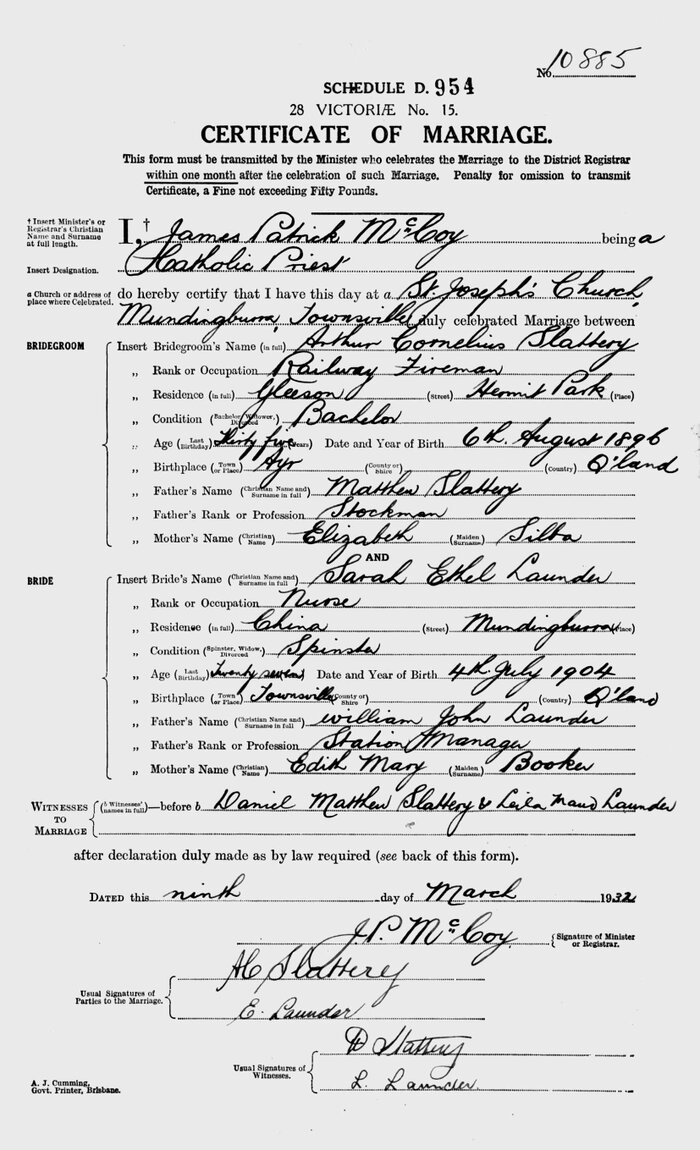 No 10885
SCHEDULE D. 954
28 VICTORIÆ No. 15.
CERTIFICATE OF MARRIAGE.
This form must be transmitted by the Minister who celebrates the Marriage to the District Registrar
within one month after the celebration of such Marriage. Penalty for omission to transmit
Certificate, a Fine not exceeding Fifty Pounds.
† Insert Minister's or Registrar's Christian Name and Surname at full length. I,† James Patrick McCoy being a
Insert Designation. Catholic Priest
a Church or address of place where Celebrated. do hereby certify that I have this day at a St. Joseph's Church,
Mundingburra, Townsville duly celebrated Marriage between
BRIDEGROOM Insert Bridegroom's Name (in full) Arthur Cornelius Slattery
„ Rank or Occupation Railway Fireman
„ Residence (in full) Gleeson (Street) Hermit Park (Place)
„ Condition (Bachelor, Widower, Divorced) Bachelor
„ Age (Last Birthday) Thirty five (Years) Date and Year of Birth 6th. August 1896
„ Birthplace (Town or Place) Ayr (County or Shire) (Country) Q'land
„ Father's Name (Christian Name and Surname in full) Matthew Slattery
„ Father's Rank or Profession Stockman
„ Mother's Name (Christian Name) Elizabeth (Maiden Surname) Silba
AND
BRIDE Insert Bride's Name (Christian Name and Surname in full) Sarah Ethel Launder
„ Rank or Occupation Nurse
„ Residence (in full) China (Street) Mundingburra (Place)
„ Condition (Spinster, Widow, Divorced) Spinster
„ Age (Last Birthday) Twenty seven Date and Year of Birth 4th July 1904
„ Birthplace (Town or Place) Townsville (County or Shire) (Country) Q'land
„ Father's Name (Christian Name and Surname in full) William John Launder
„ Father's Rank or Profession Station Manager
„ Mother's Name (Christian Name) Edith Mary (Maiden Surname) Booker
WITNESSES TO MARRIAGE (b Witnesses' names in full)—before b Daniel Matthew Slattery & Leila Maud Launder
after declaration duly made as by law required (see back of this form).
DATED this ninth day of March 1932
J.P. McCoy. Signature of Minister or Registrar.
Usual Signatures of Parties to the Marriage. AC Slattery
E. Launder
Usual Signatures of Witnesses. D Slattery
L. Launder.
A. J. Cumming,
Govt. Printer, Brisbane.